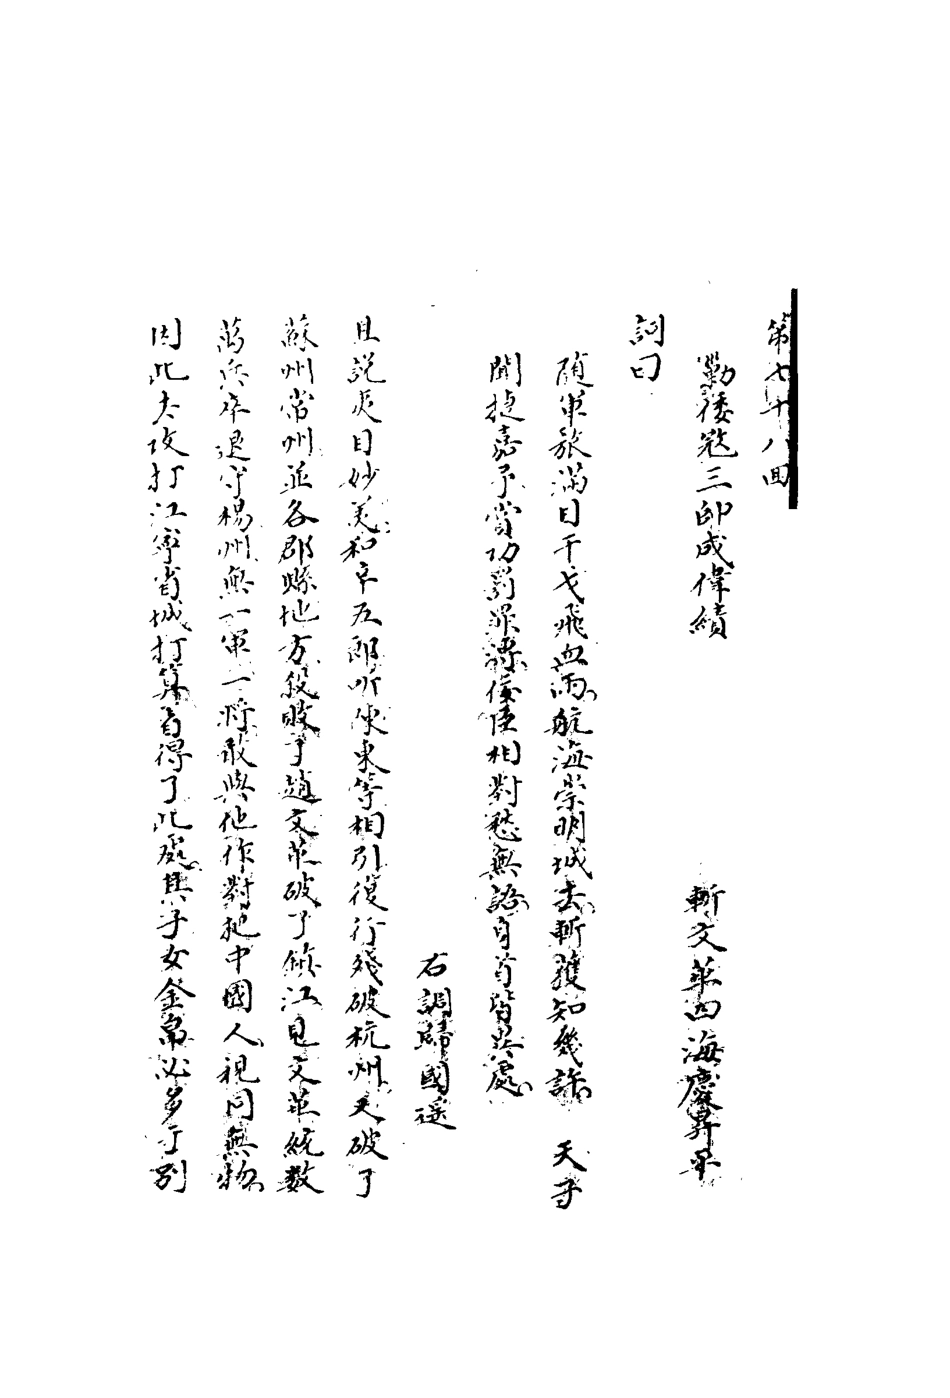 第七十八回
勦倭寇三帥成偉績 斬文華四海慶昇平
詞曰
随軍旅滿目干戈飛血雨航海崇明城去斬獲知幾許 天子
聞捷嘉予賞功罰罪深倭臣相對愁無語身首皆異處
右調歸國遥
且説夜目妙美和辛五郎听陳東等相引復行殘破杭州又破了
蘇州常州並各郡縣地方殺敗了趙文華破了鎮江見文華統数
萬兵卒退守楊州無一軍一將敢與他作對把中國人視同無物
因此大攻打江寧省城打算省得了此處其子女金帛必多于別